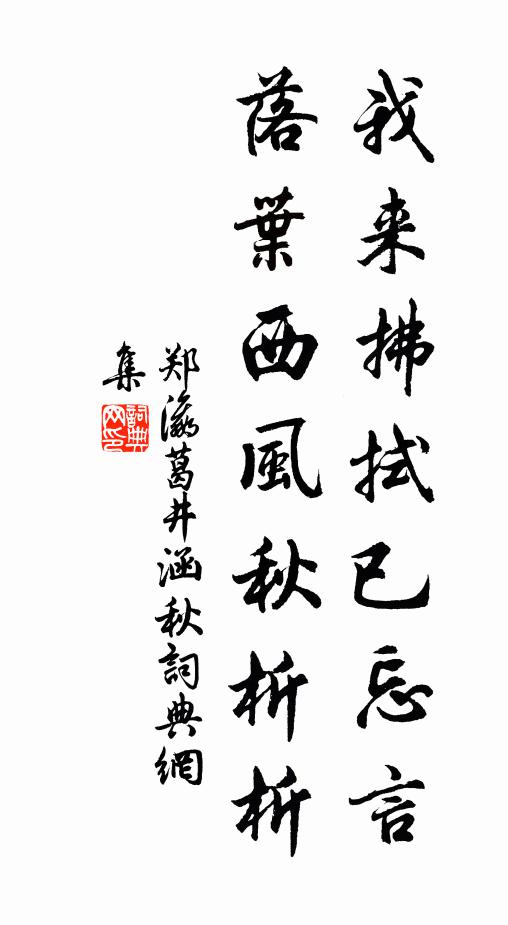 我来拂拭已忘言
落葉西風秋析析
郑瀛葛井涵秋詞典網
集
詞典网印